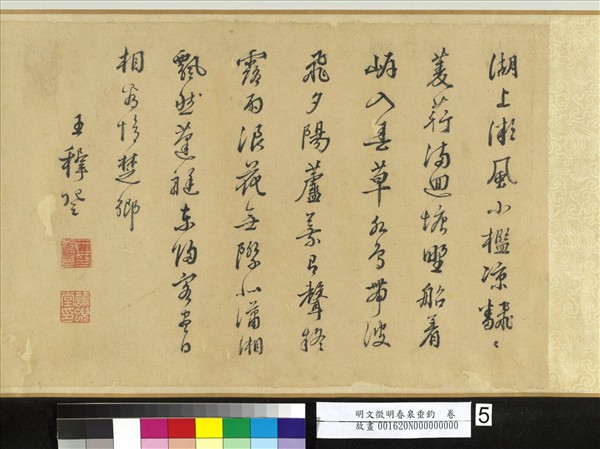 湖上微風小檻涼翻〻
菱荇滿迴塘野船着
岸入春草水鳥帶波
飛夕陽蘆葉有聲疑
霧雨浪花無際似瀟湘
飄然蓬艇東歸客盡日
相看憶楚鄉
王穉登
明文徵明春泉垂釣 卷
故畫 001620N000000000
5